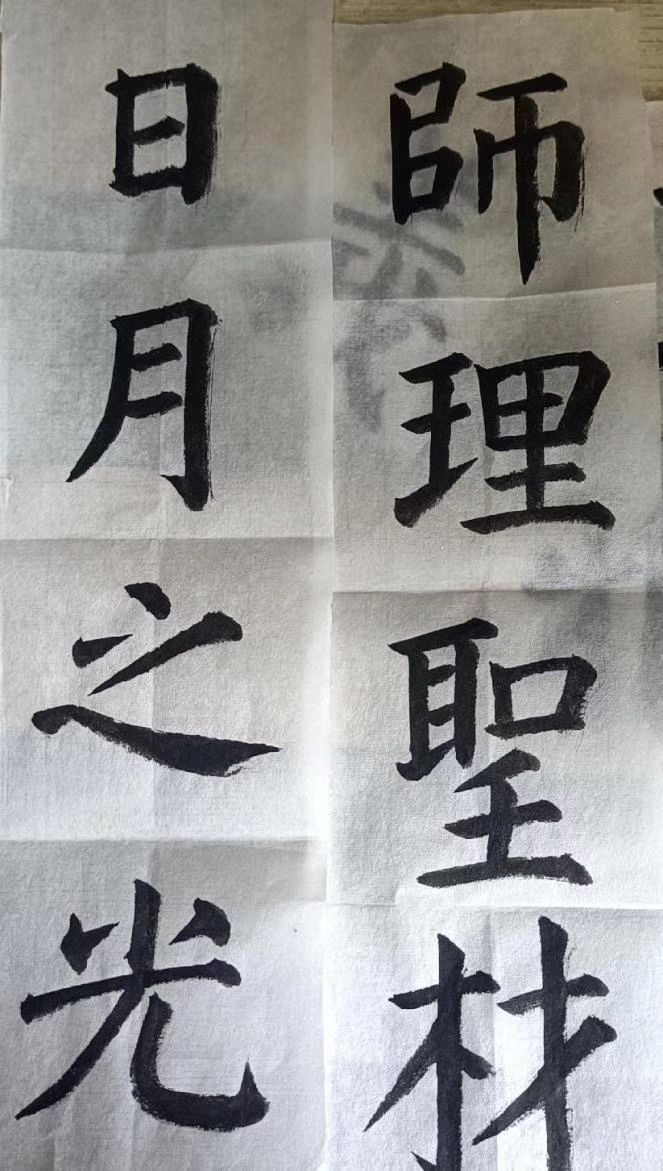 師理聖材
日月之光